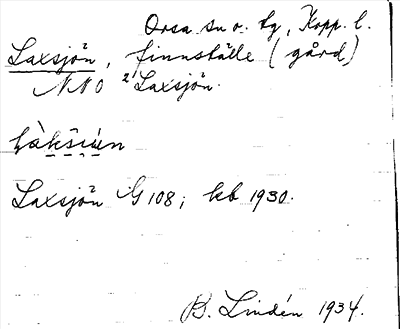 Orsa sn o. tg, Kopp. l.
Laxsjön, finnställe (gård)
NNO 2 Laxsjön.
làksiún
Laxsjön G 108; kb 1930.
B. Lindén 1934.